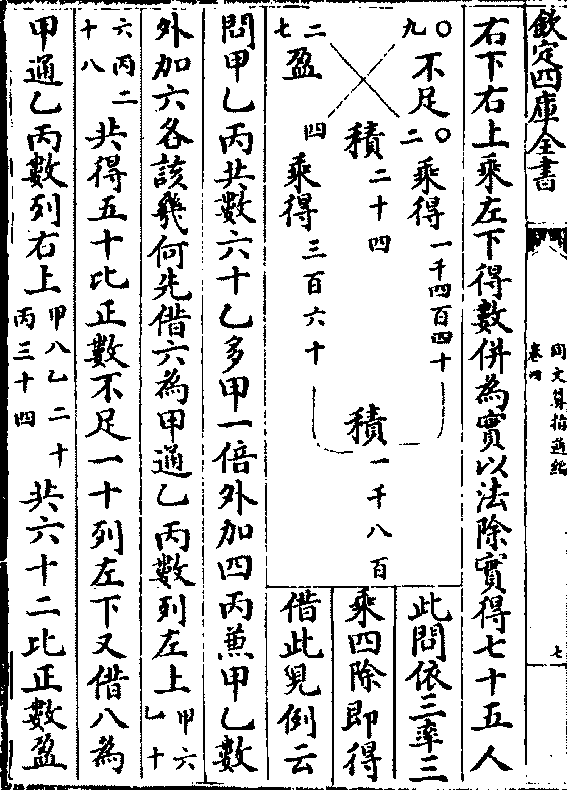 欽定四庫全書
同文算指通編
卷四
七
右下右上乘左下得數併為實以法除實得七十五人
九〇 不足 二〇 乘得 一千四百四十
積 二十四
積 一千八百
七二 盈 四 乘得 三百六十
此問依三率三
乘四除即得
借此見例云
問甲乙丙共數六十乙多甲一倍外加四丙兼甲乙數
外加六各該幾何先借六為甲通乙丙數列左上 甲六乙十
六丙二十八 共得五十比正數不足一十列左下又借八為
甲通乙丙數列右上 甲八乙二十丙三十四 共六十二比正數盈